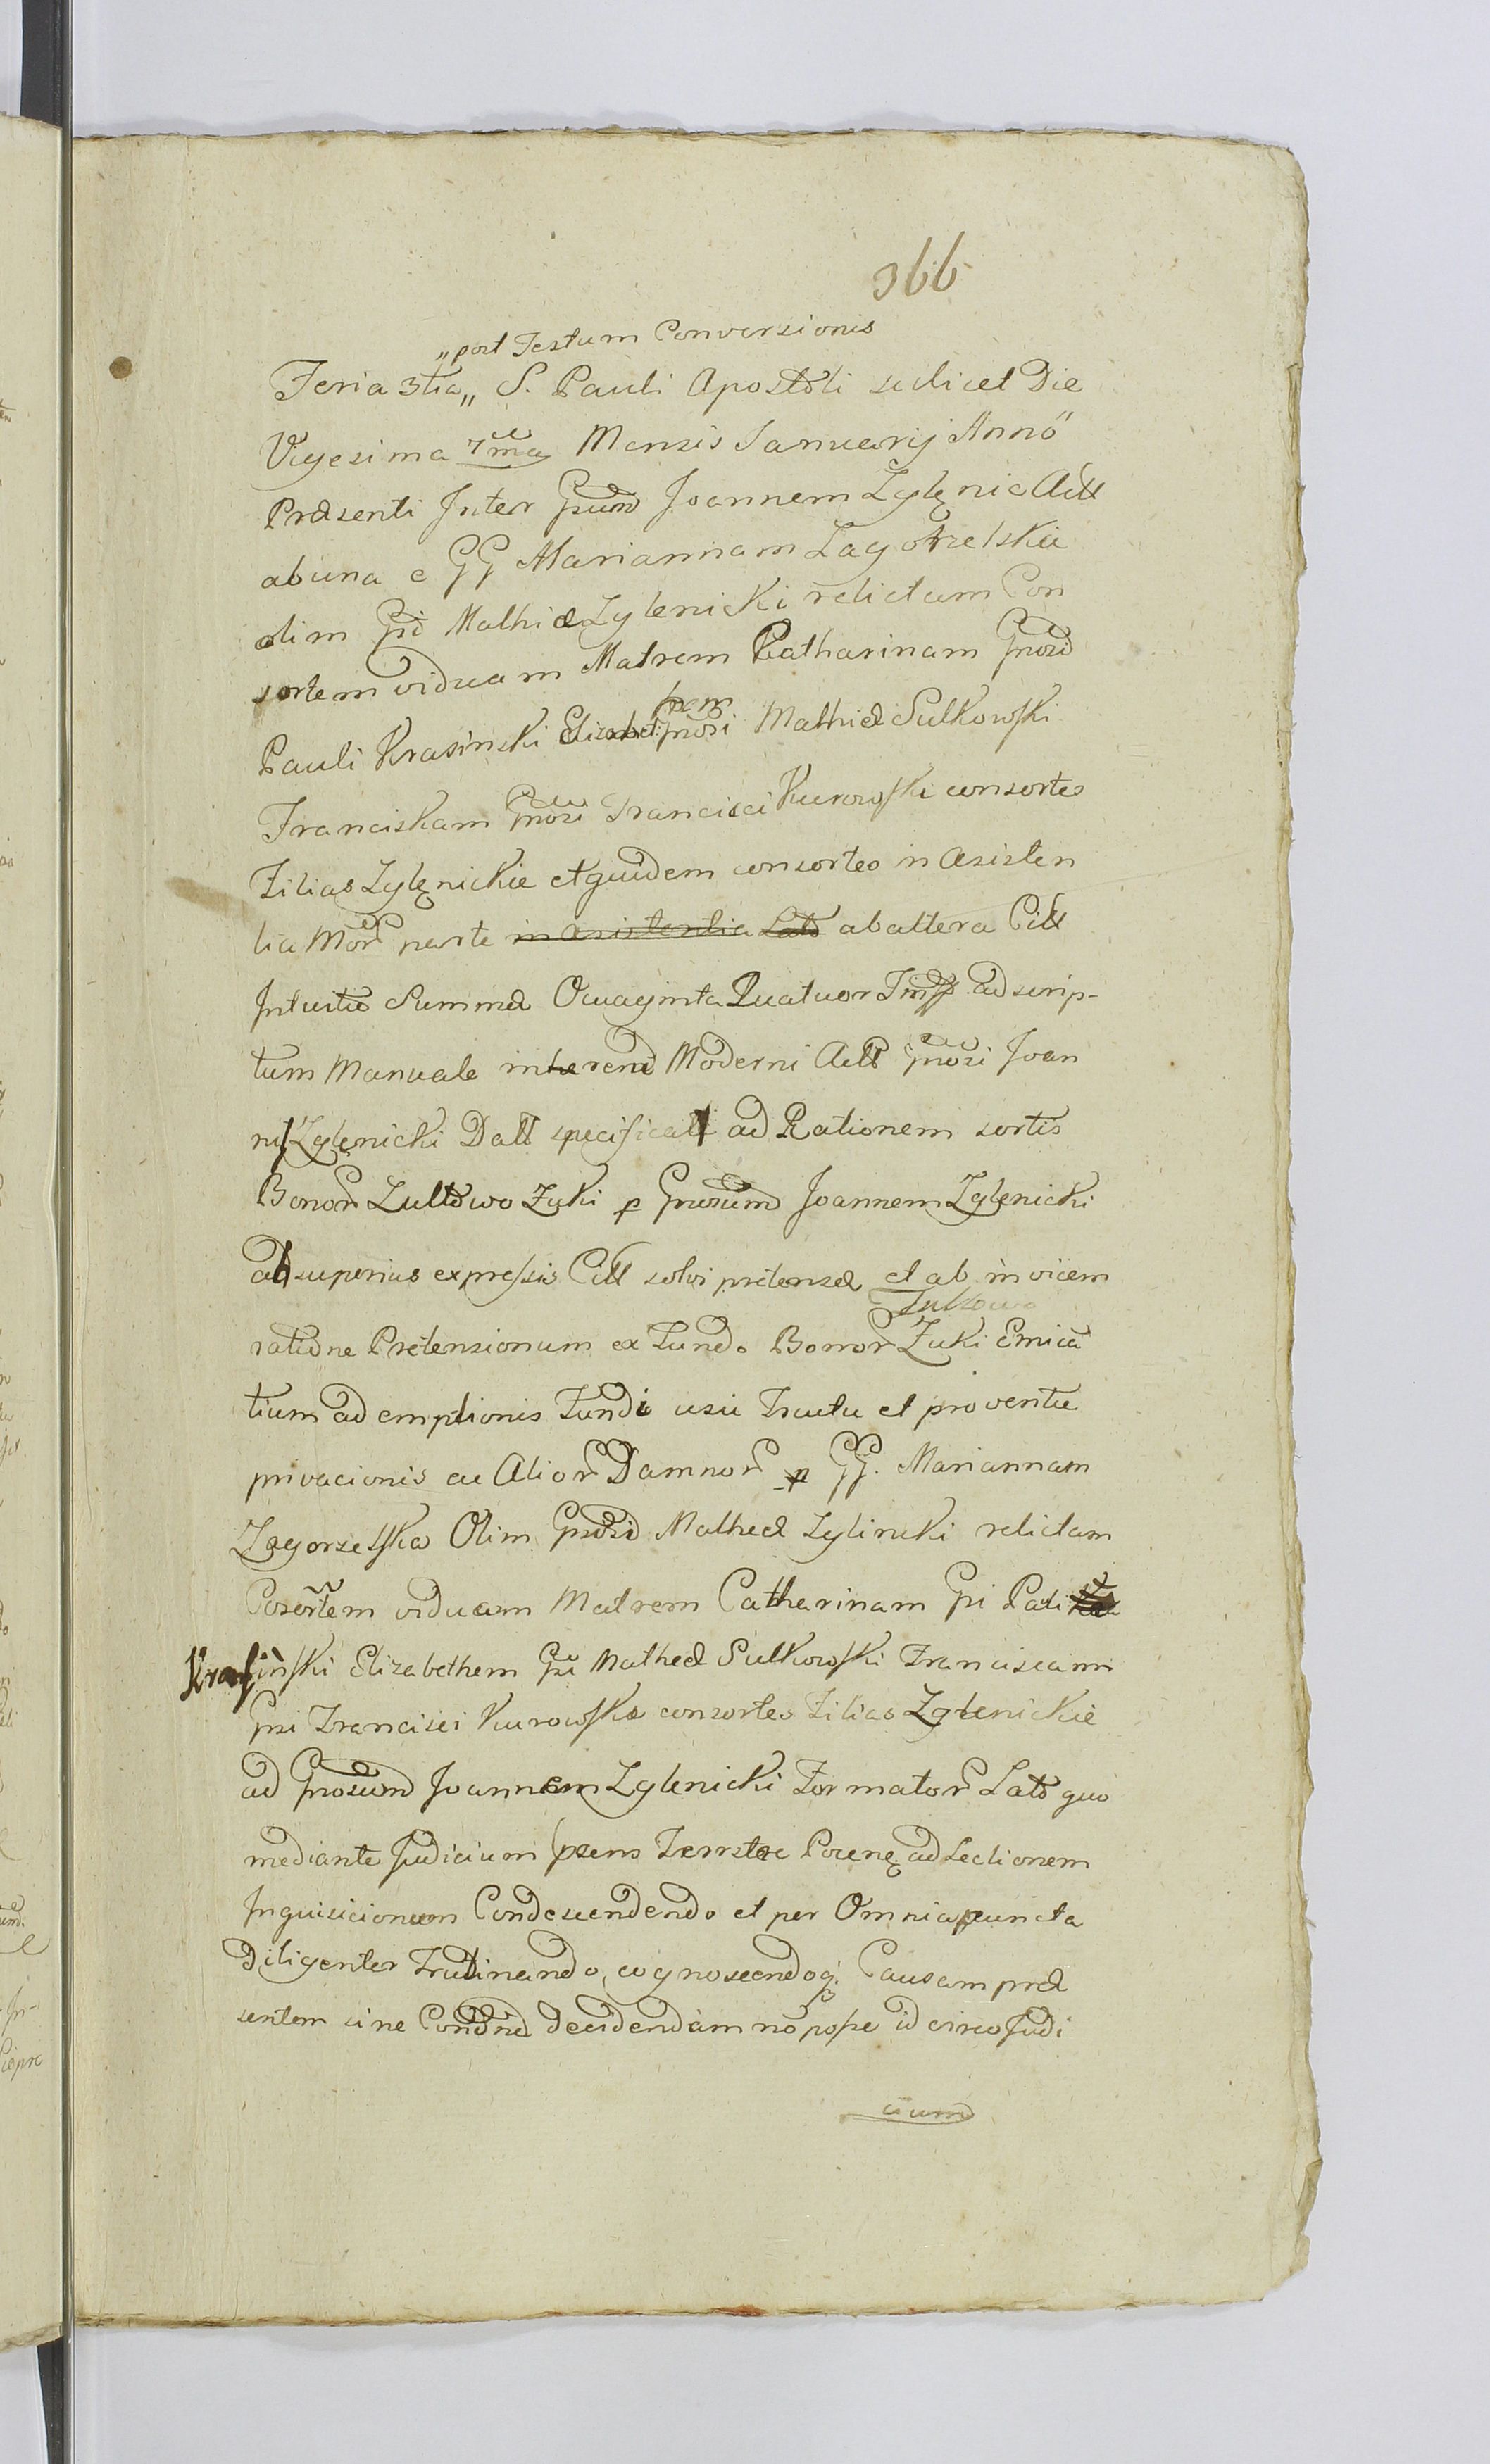 366
„post Festum Conversionis
Feria 3tia„ S. Pauli Apostoli scilicet Die
Vigesima 7ma Mensis Januarij Anno
Præsenti Inter Gsum Joannem Zglenic Actt
abuna e GG Mariannam Zagorzelskie
olim Gsi Mathiæ Zglenicki relictam Con
sortem viduam Matrem Catharinam Gnosi
Pauli Krasinski Elizabet: hem Gnosi Mathiæ Sulkowski
Franciskam Gnosi Francisci Kurowski consortes
Filias Zglęnickie et quidem consortes in Asisten
tia Mor parte in asistentia Lato abaltera Citt
Intuitu Summæ Octuaginta Quatuor Imp ad scrip-
tum Manuale inherend Moderni Actt Gnosi Joan
nis Zglęnicki Datt specificatt ad Rationem sortis
Bonor Zultowo Zuki p Gnosum Joannem Zglęnicki
ab superius expressis Citt solvi prætensæ et ab invicem
Zultowo
ratione Prætensionum ex Fundo Bonor Zuki Emica
tium ademptionis Fundi usu Fructu et proventu
privacionis ac Alior Damnor p GG. Mariannam
Zagorzelska Olim Gnosi Matheæ Zglinicki relictam
Cosortem viduam Matrem Catharinam Gsi Pauli
Krasinski Elizabethem Gsi Matheæ Sulkowski Franciscam
Gsi Francisci Kurowska consortes Filias Zglenickie
ad Gnosum Joannem Zglenicki Formator Lato quo
mediante Judicium psens Terrstre Pocenę ad Lectionem
Inquisicionum Condescendendo et per Omnia puncta
Diligenter Trutinando, cognoscendoq; Causam præ
sentem sine Condnæ decidendam no posse id circo Judi
cium